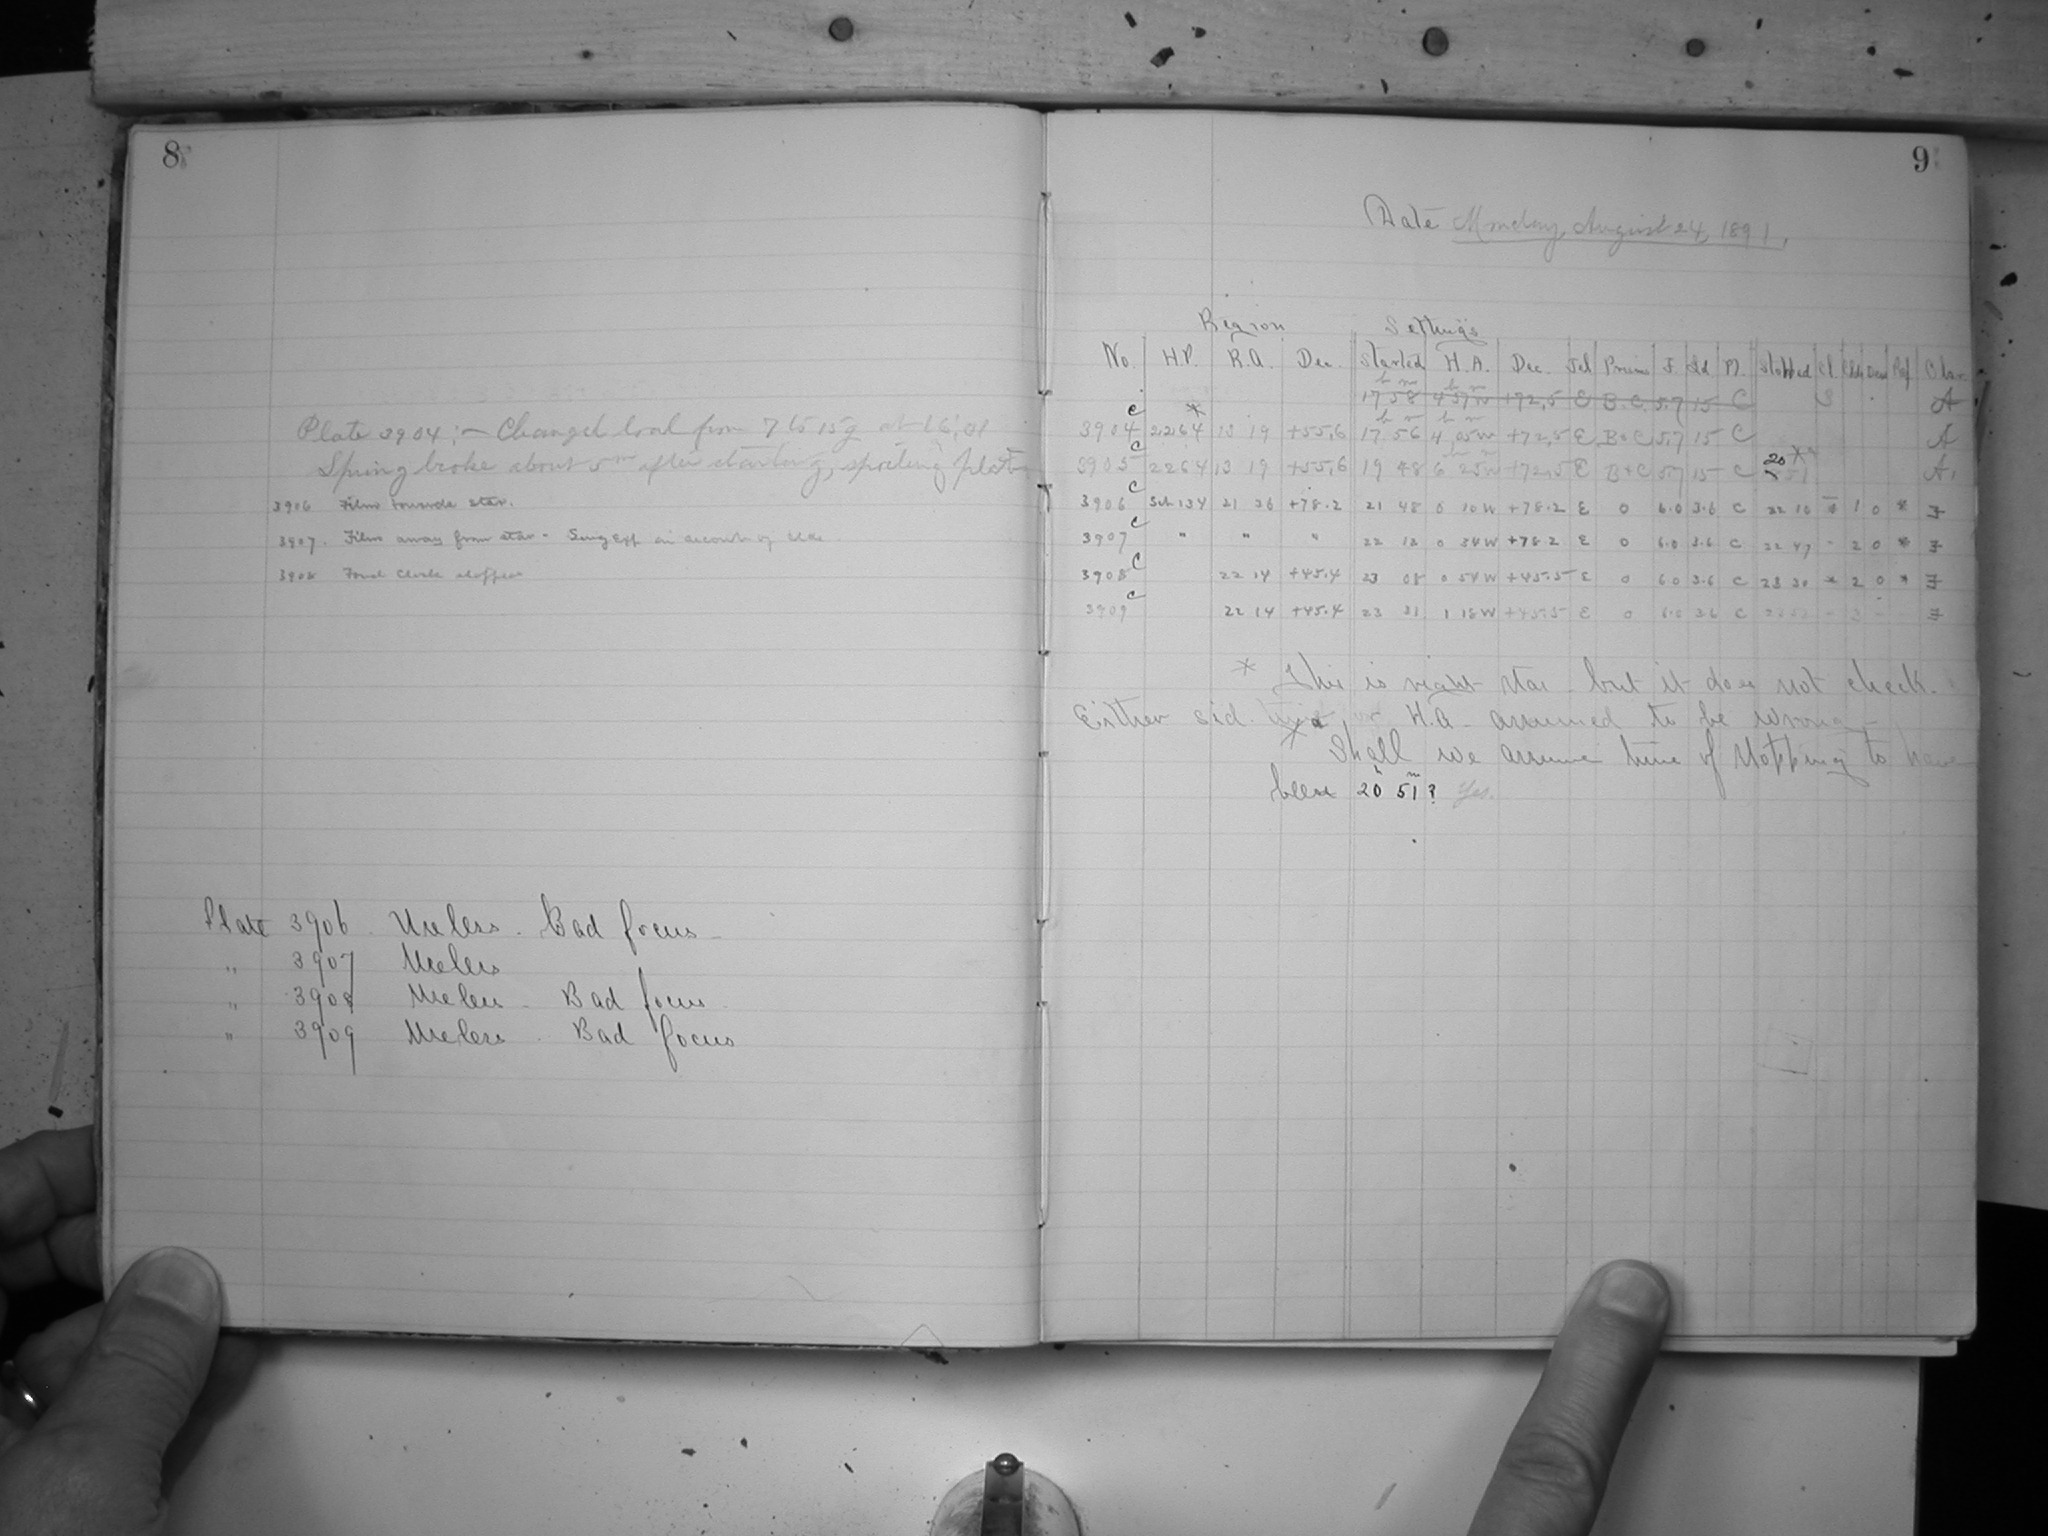 8
Plate 3904:- Changed load from 7 to 15g at 16:01
Spring broke about 5m after starting, spoiling plate
3906 Film towards star.
3907. Film away from star - on account of
3908 Found clock stopped
Plate 3906. Useless. Bad focus
" 3907 Useless
" 3908 Useless - Bad focus
" 3909 Useless - Bad focus
9
Date Monday, August 24, 1891,
Region Settings
No. H.P. R.A. Dec. Started H.A. Dec. Tel Prism F. Sd. Pl. Stopped Cl. Cldy Dew Ref Obsr.
h m h m
17 58 4 57w +72,5 E B.C. 5.7 15 C 3 A
c * h m h m
3904 2264 13 19 +55,6 17 56 4,05w +72,5 E B+C 5.7 15 C A
c 20 **
3905 2264 13 19 +55,6 19 48 6 25w +72,5 E B+C 5.7 15 C 51 A,
c
3906 Sch 134 21 36 +78.2 21 48 0 10W +78.2 E 0 6.0 3.6 C 22 10 1 0 * F
c
3907 " " " 22 12 0 34W +78.2 E 0 6.0 3.6 C 22 47 - 2 0 * F
c
3908 22 14 +45.4 23 08 0 54W +45.5 E 0 6.0 3.6 C 23 30 * 2 0 * F
c
3909 22 14 +45.4 23 31 1 18W +45.5 E 0 6.0 3.6 C - 2 - F
* This is right star but it does not check.
Either sid. time or H.A. assumed to be wrong
** Shall we assume time of stopping to have
been 20h 51m? Yes.